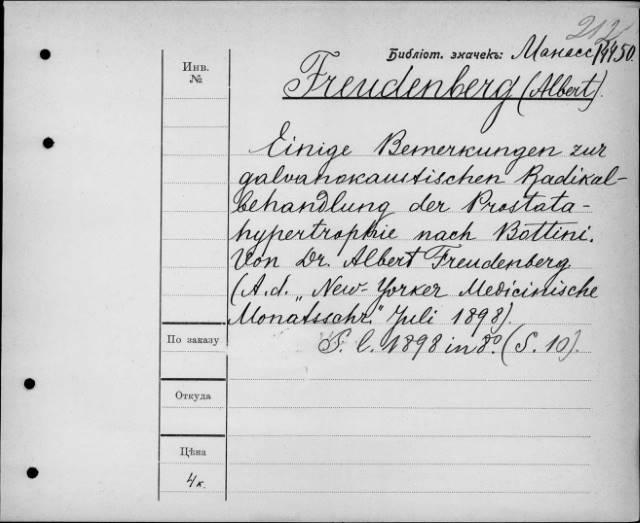 212
Библіот. значекъ: Манасс
Инв.
№
Freudenberg (Albert).
Einige Bemerkungen zur
galvanokaustischen Radikal-
behandlung der Prostata-
hypertrophie nach Bottini.
Von Dr. Albert Freudenberg
(A. d. „New-Yorker Medicinische
Monatsschr." Juli 1898).
По заказу
S. l. 1898 in 8º. (S. 10).
Откуда
Цѣна
4 к.